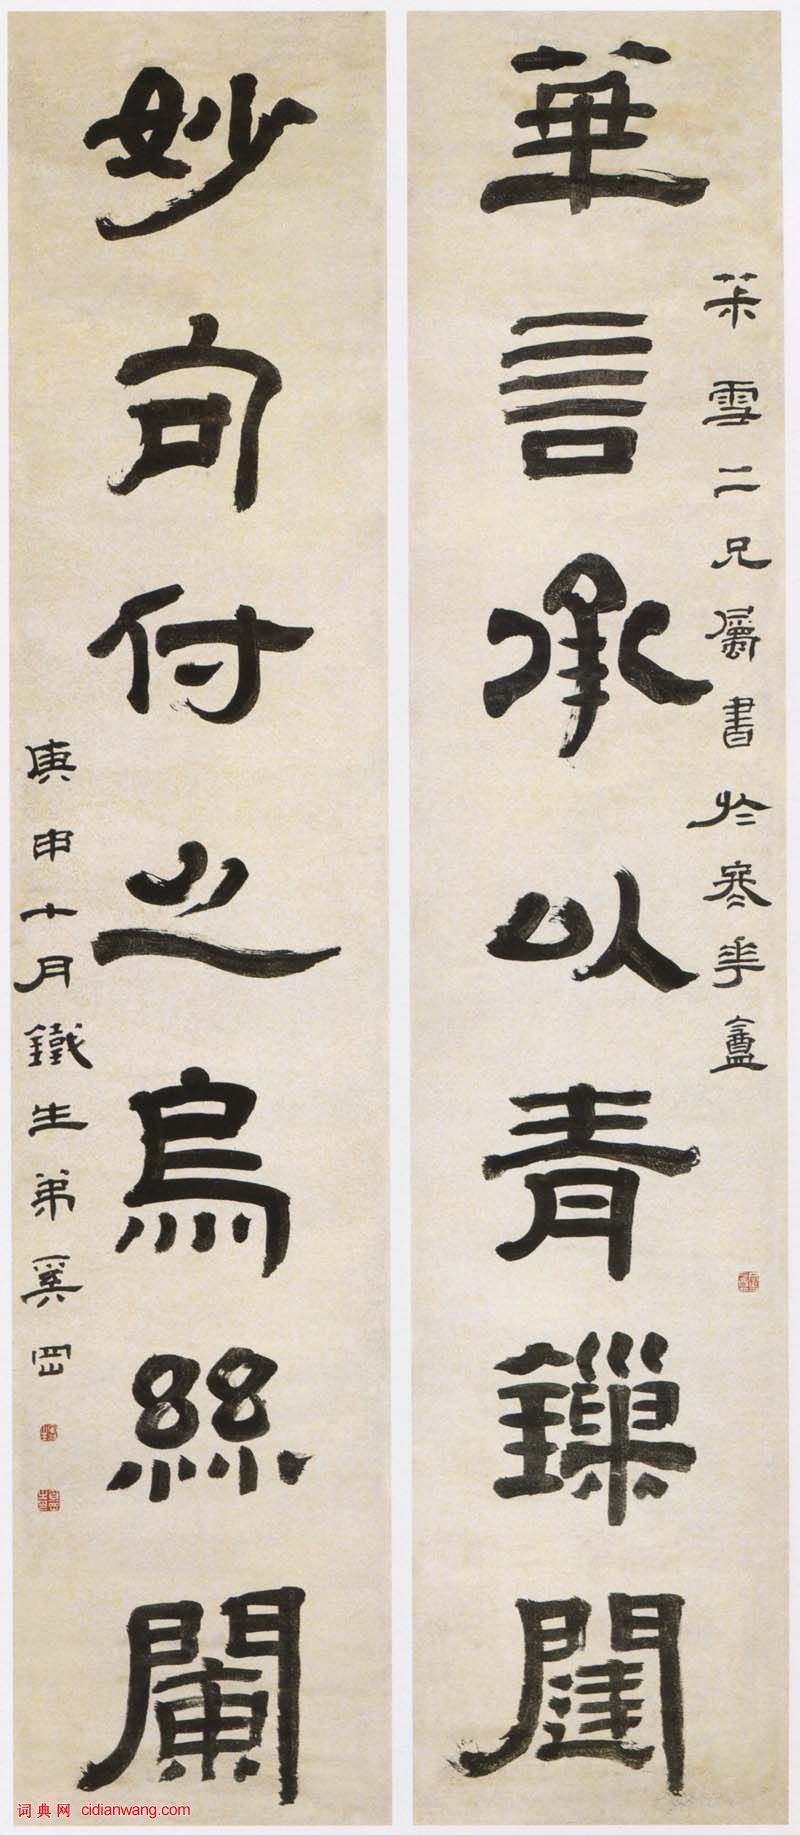 茮雪二兄屬書於華盦
華言承以青鏁闥
妙句付之烏絲闌
庚申十月鐵生弟奚岡
词典网 cidianwang.com